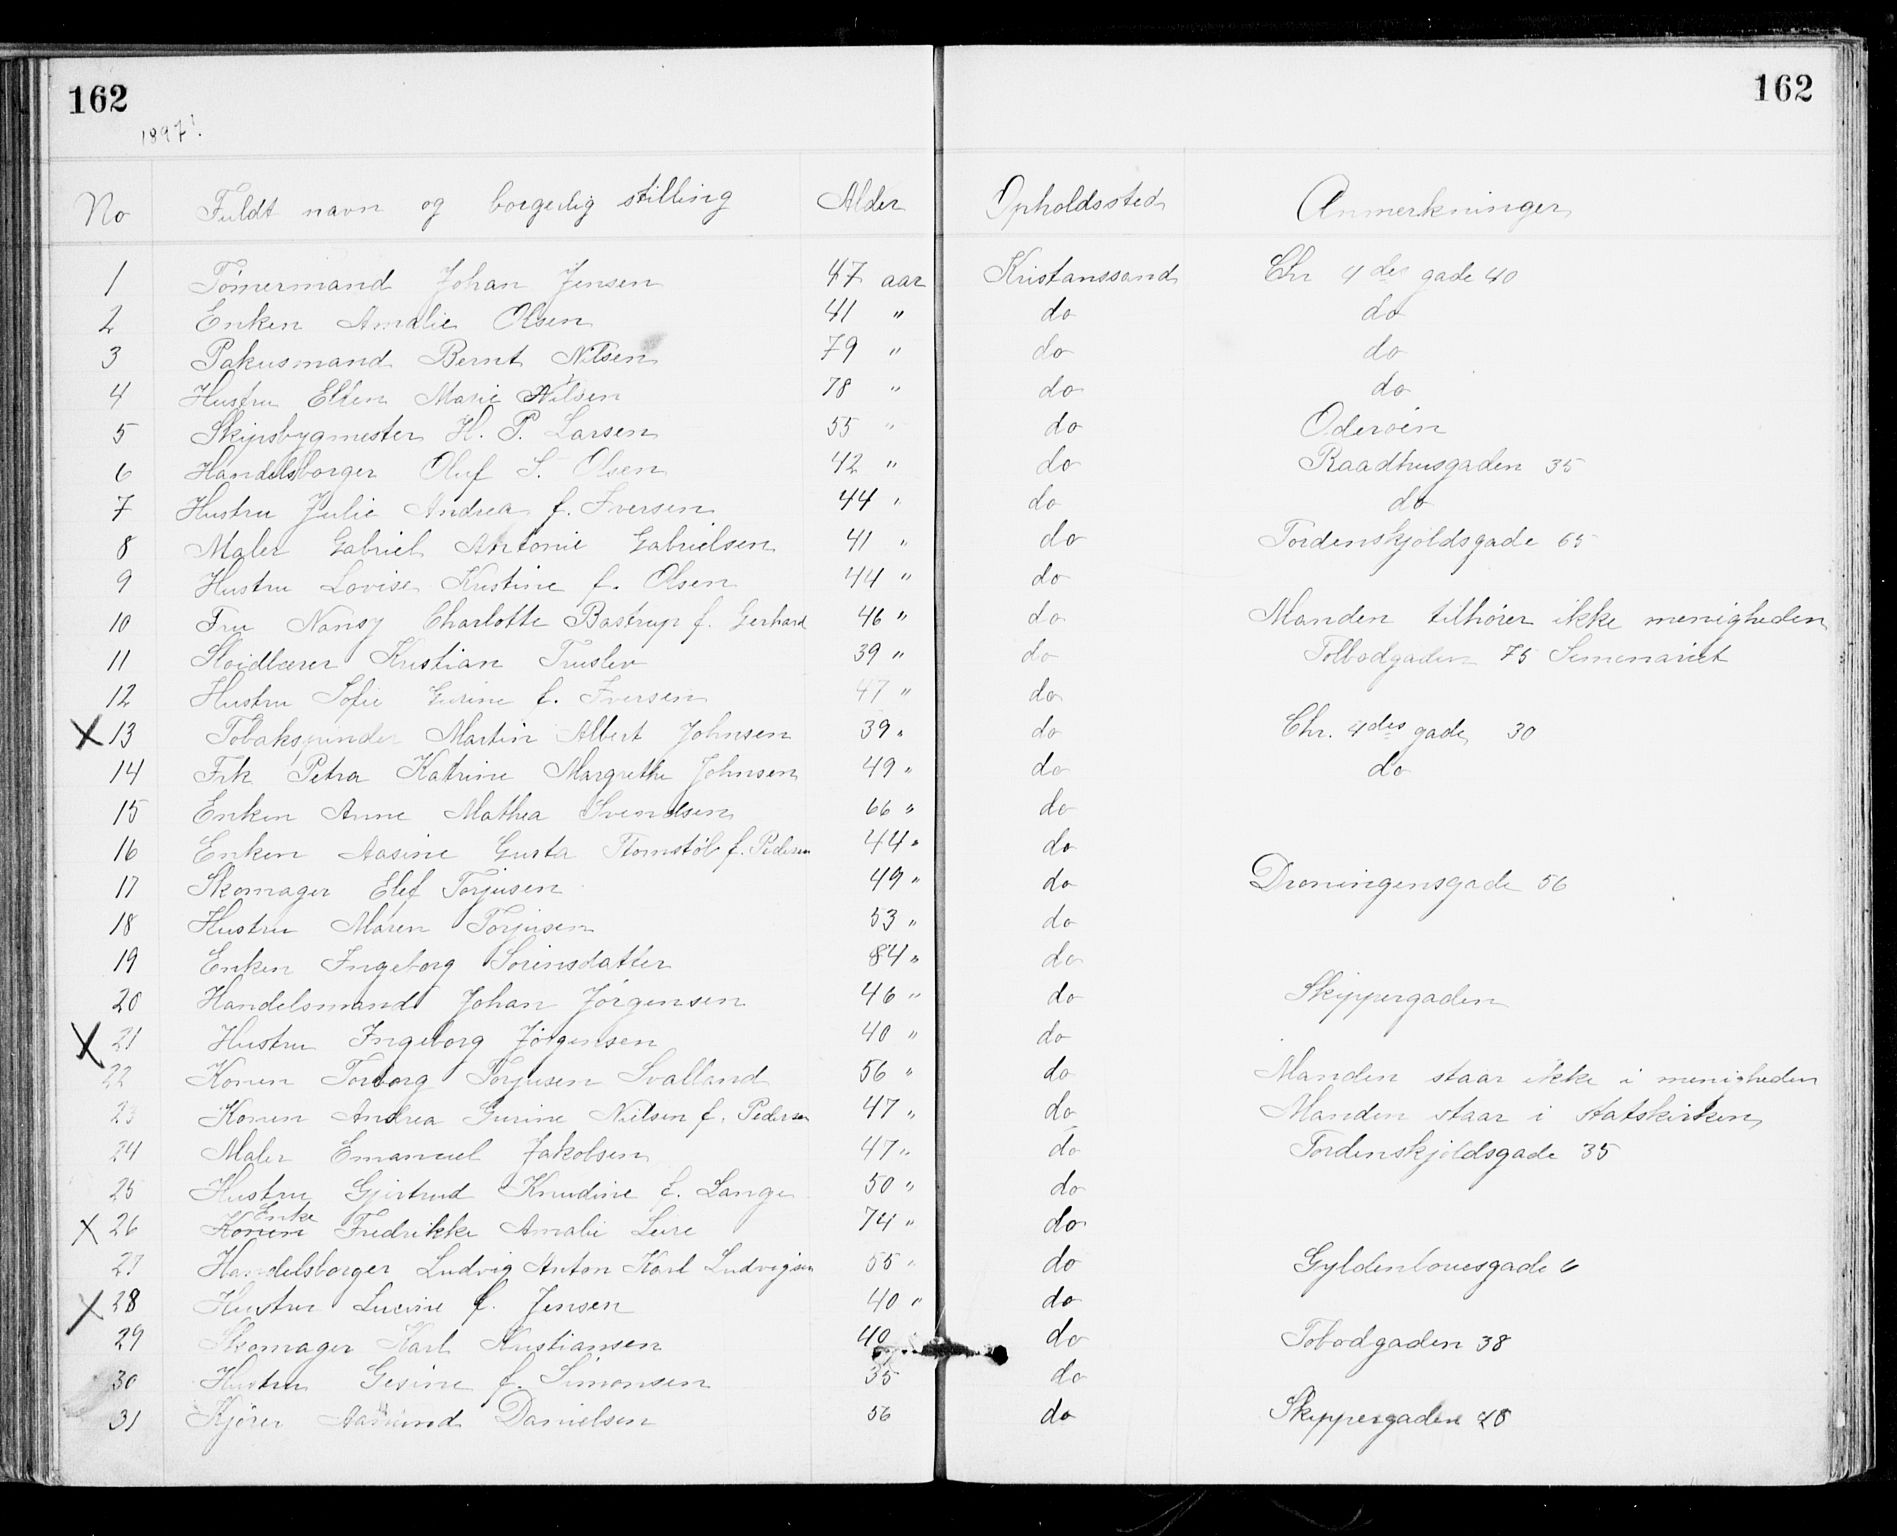 162 162
1897!
No Fuldt navn og borgerlig stilling Alder Opholdssted Anmerkninger
1 Tømermand Johan Jensen 47 aar Kristanssand Chr 4des gade 40
2 Enken Amalie Olsen 41 " do do
3 Pakusmand Bernt Nilsen 79 " do do
4 Hustru Ellen Marie Nilsen 78 " do do
5 Skipsbygmester H. P. Larsen 55 " do Oderøen
6 Handelsborger Oluf S. Olsen 42 " do Raadhusgaden 35
7 Hustru Julie Andrea f. Iversen 44 " do do
8 Maler Gabriel Antonie Gabrielsen 41 " do Tordenskjoldsgade 65
9 Hustru Lovise Kristine f. Olsen 44 " do
10 Fru Nansy Charlotte Bastrup f. Gerhard 46 " do Manden tilhører ikke menigheden
11 Kristian Truslev 39 " do Tolbodgaden 75 Semenariet
12 Hustru Sofie Gurine f. Iversen 47 " do
X 13 Tobakspinder Martin Albert Johnsen 39 " do Chr. 4des gade 30
14 Frk Petra Katrine Margrethe Johnsen 49 " do do
15 Enken Anne Mathea Svendsen 66 " do
16 Enken Aasine Gurta f. Pedersen 44 " do
17 Skomager Elef Torjusen 49 " do Droningensgade 56
18 Hustru Maren Torjusen 53 " do
19 Enken Ingeborg Sørensdatter 84 " do
20 Handelsmand Johan Jørgensen 46 " do Skippergaden
X 21 Hustru Ingeborg Jørgensen 40 " do
22 Konen Torborg Torjusen Svalland 56 " do Manden staar ikke i menigheden
23 Konen Andrea Gurine Nielsen f. Pedersen 47 " do Manden staar i statskirken
24 Maler Emanuel Jakobsen 47 " do Tordenskjoldsgade 35
25 Hustru Gjertrud Knudine f. Lange 50 " do
Enke
X 26 Konen Fredrikke Amalie Lure 74 " do
27 Handelsborger Ludvig Anton Karl Ludvigsen 55 " do Gyldenlovesgade 6
X 28 Hustru Lucine f. Jensen 40 " do
29 Skomager Karl Kristiansen 40 do Tobodgaden 38
30 Hustru Gesine f. Simonsen 35 do
31 Kjører Aamund Danielsen 56 do Skippergaden 48